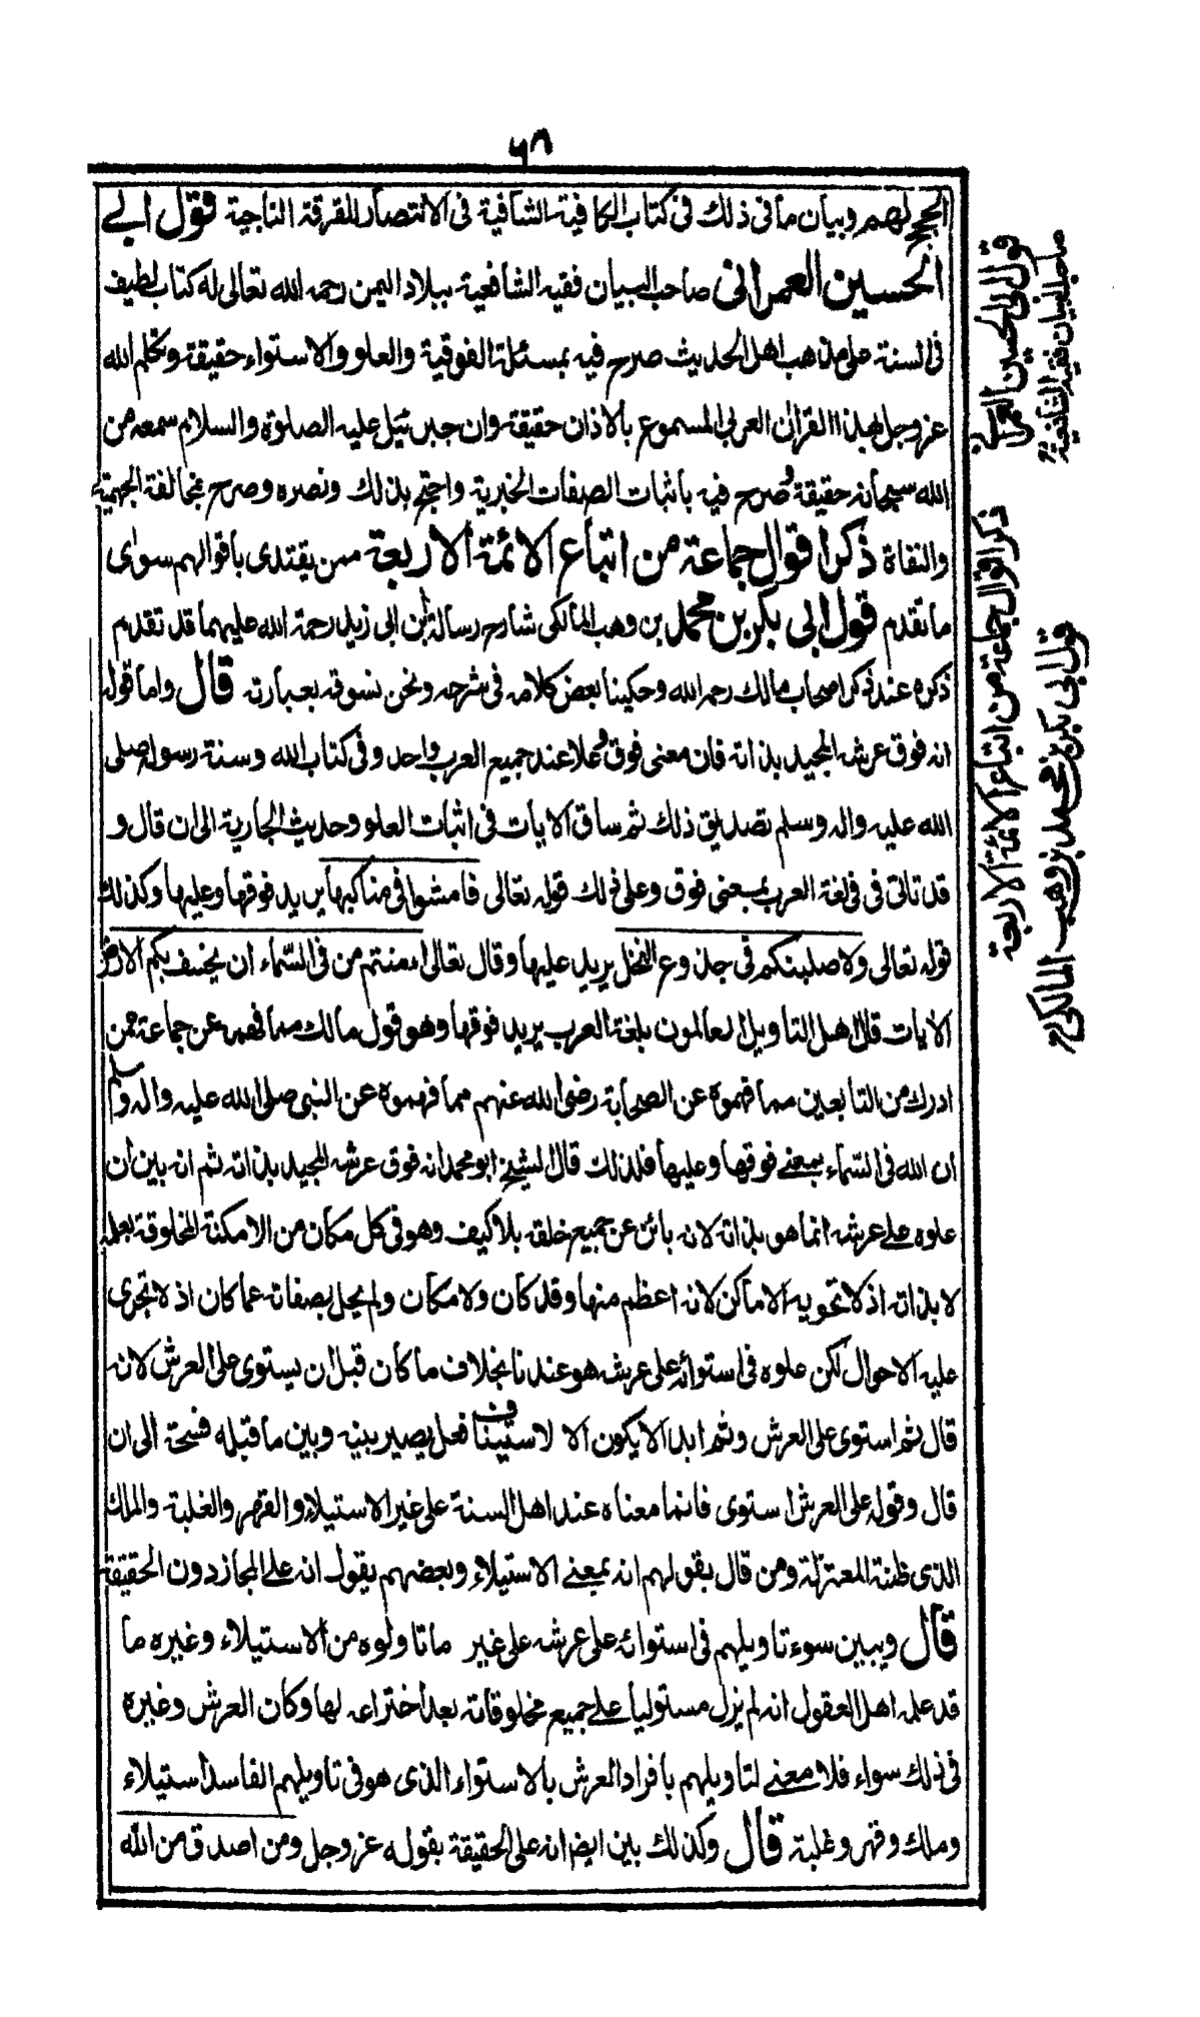 ٦٨
الحجج لهم وبيان ما فى ذلك فى كتاب الكافية الشافية فى الانتصار للفرقة الناجية قول ابي
الحسين العمرانى صاحب البيان فقيه الشافعية ببلاد اليمن رحمه الله تعالى له كتاب لطيف
فى السنة على مذهب اهل الحديث صرح فيه بمسئلة الفوقية والعلو والاستواء حقيقة وتكلم الله
عز وجل بهذا القرآن العربى المسموع بالاذان حقيقة وان جبرئيل عليه الصلوة والسلام سمعه من
الله سبحانه حقيقة وصرح فيه باثبات الصفات الخبرية واحتج بذلك ونصره وصرح بمخالفة الجهمية
والنفاة ذكر اقوال جماعة من اتباع الائمة الاربعة ممن يقتدى باقوالهم سوى
ما تقدم قول ابى بكر بن محمد بن وهب المالكى شارح رسالة ابن ابى زيد رحمة الله عليهما قد تقدم
ذكره عند ذكر اصحاب مالك رحمه الله وحكينا بعض كلامه فى شرحه ونحن نسوقه بعبارته قال واما قوله
انه فوق عرشه المجيد بذاته فان معنى فوق وعلا عند جميع العرب واحد وفى كتاب الله وسنة رسوله صلى
الله عليه واله وسلم تصديق ذلك ثم ساق الايات فى اثبات العلو وحديث الجارية الى ان قال و
قد تاتى فى فى لغة العرب بمعنى فوق وعلى ذلك قوله تعالى فامشوا فى مناكبها يريد فوقها وعليها وكذلك
قوله تعالى ولاصلبنكم فى جذوع النخل يريد عليها وقال تعالى امنتم من فى السماء ان يخسف بكم الارض
الايات قال اهل التاويل العالمون بلغة العرب يريد فوقها وهو قول مالك مما فهمه عن جماعة ممن
ادرك من التابعين مما فهموه عن الصحابة رضى الله عنهم مما فهموه عن النبى صلى الله عليه واله وسلم
ان الله فى السماء بمعنى فوقها وعليها فلذلك قال الشيخ ابو محمد انه فوق عرشه المجيد بذاته ثم انه بين ان
علوه على عرشه انما هو بذاته لانه بائن عن جميع خلقه بلا كيف وهو فى كل مكان من الامكنة المخلوقة بعلمه
لا بذاته اذ لا تحويه الاماكن لانه اعظم منها وقد كان ولا مكان ولم يحل بصفاته عما كان اذ لا تجرى
عليه الاحوال لكن علوه فى استوائه على عرشه هو عندنا بخلاف ما كان قبل ان يستوى على العرش لانه
قال ثم استوى على العرش وثم ابدا لا يكون الا لاستيناف فعل يصير بينه وبين ما قبله فسحة الى ان
قال وقوله على العرش استوى فانما معناه عند اهل السنة على غير الاستيلاء والقهر والغلبة والملك
الذى ظنته المعتزلة ومن قال بقولهم انه بمعنى الاستيلاء وبعضهم يقول انه على المجاز دون الحقيقة
قال ويبين سوء تاويلهم فى استوائه على عرشه على غير ما تاولوه من الاستيلاء وغيره ما
قد علمه اهل العقول انه لم يزل مستوليا على جميع مخلوقاته بعد اختراعه لها وكان العرش وغيره
فى ذلك سواء فلا معنى لتاويلهم بافراد العرش بالاستواء الذى هو فى تاويلهم الفاسد استيلاء
وملك وقهر وغلبة قال وكذلك بين ايضا انه على الحقيقة بقوله عز وجل ومن اصدق من الله
قول ابى الحسين العمرانى
صاحب البيان فقيه الشافعية
ذكر اقوال جماعة من اتباع الائمة الاربعة
قول ابى بكر بن محمد بن وهب المالكى